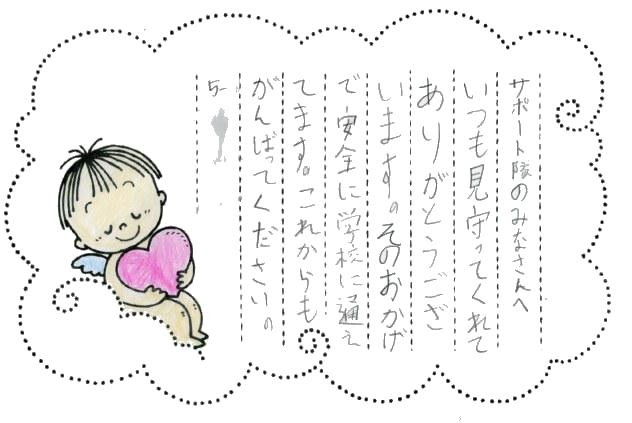 サポート隊のみなさんへ
いつも見守ってくれて
ありがとうござ
います。そのおかげ
で安全に学校に通え
てます。これからも
がんばってください。
5-